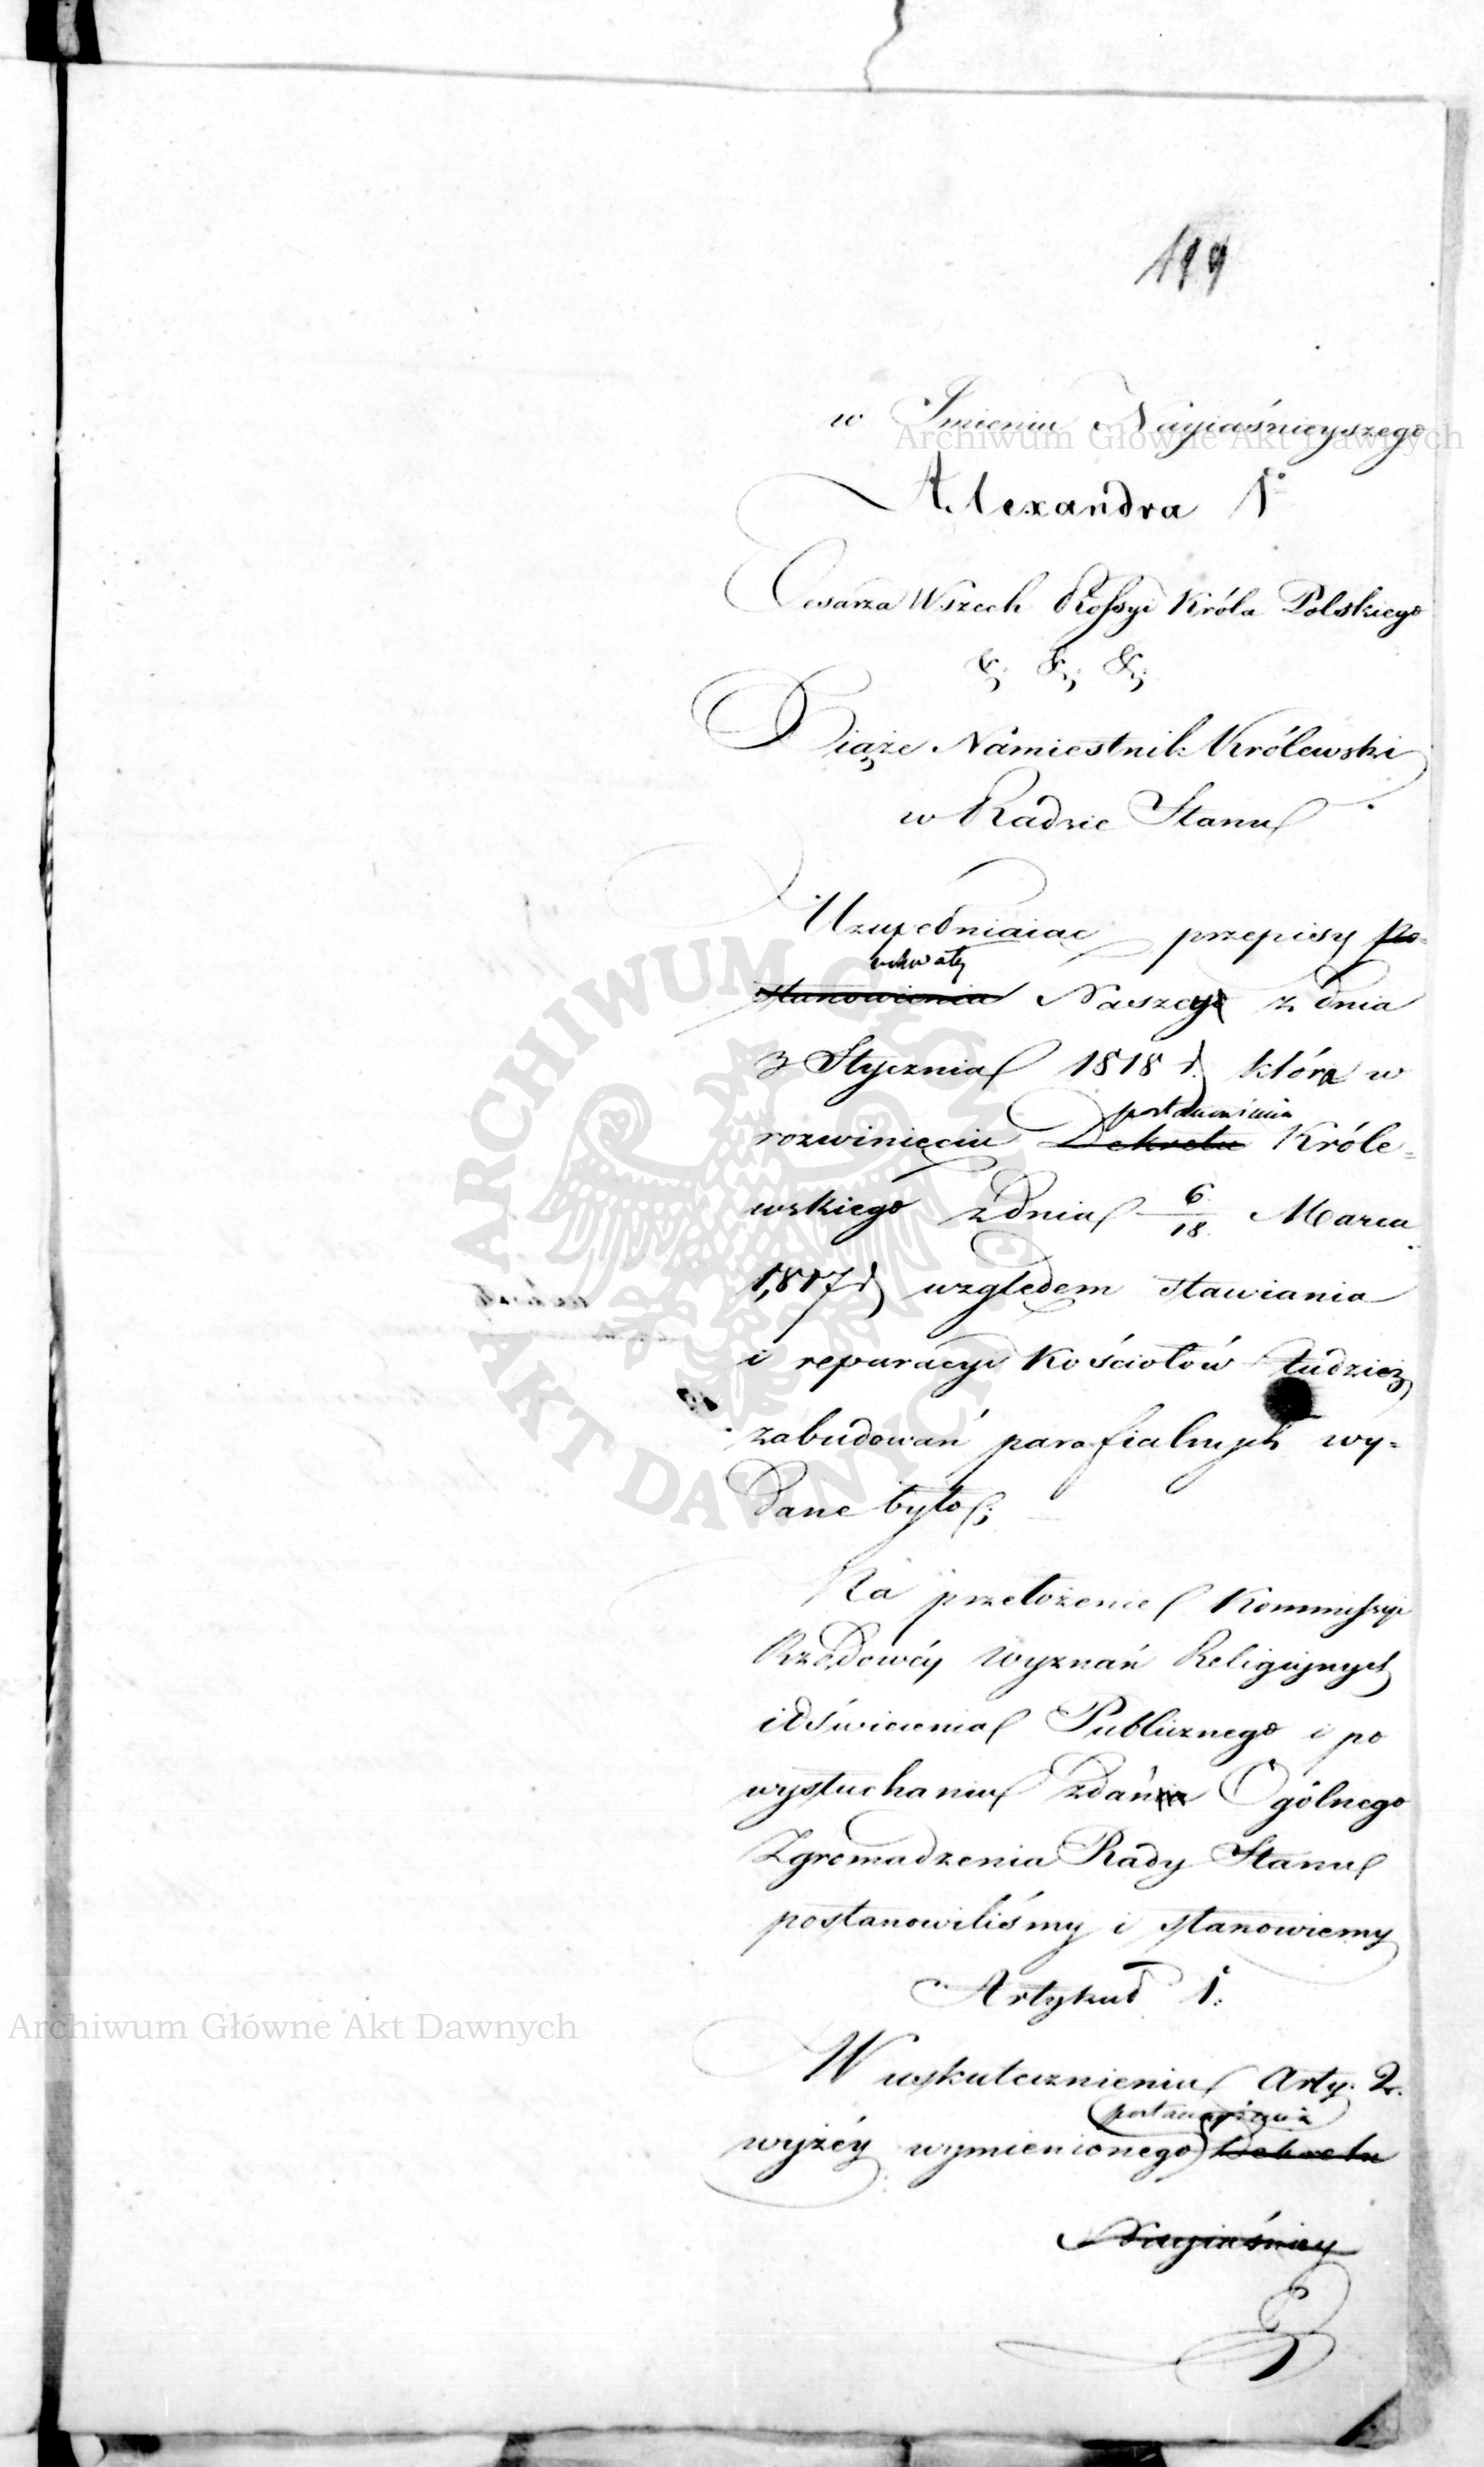 199
w Imieniu Nayiaśnieyszego
Alexandra 1º
Cesarza Wszech Rossyi Króla Polskiego
&; &; &;
Xiąże Namiestnik Królewski
w Radzie Stanu
Uzupełniaiąc przepisy po=
uchwały
stanowienia Naszey z dnia
3 Stycznia 1818 r. która w
postanowienia
rozwinięciu Dekretu Króle=
wskiego z dnia 6/18 Marca
1,817 r. względem stawiania
i reparacyi Kościołów tudzież
zabudowań parafialnych wy=
dane było;
Na przełożenie Kommissyi
Rządowéy Wyznań Religiynych
i Oświecenia Publicznego i po
wysłuchaniu zdania Ogólnego
Zgromadzenia Rady Stanu
postanowiliśmy i stanowiemy
Artykuł 1.
W uskutecznieniu Arty. 2.
postanowienia
wyżéy wymienionego Dekretu
Nayiaśniey
Archiwum Główne Akt Dawnych
ARCHIWUM GŁÓWNE AKT DAWNYCH
Archiwum Główne Akt Dawnych